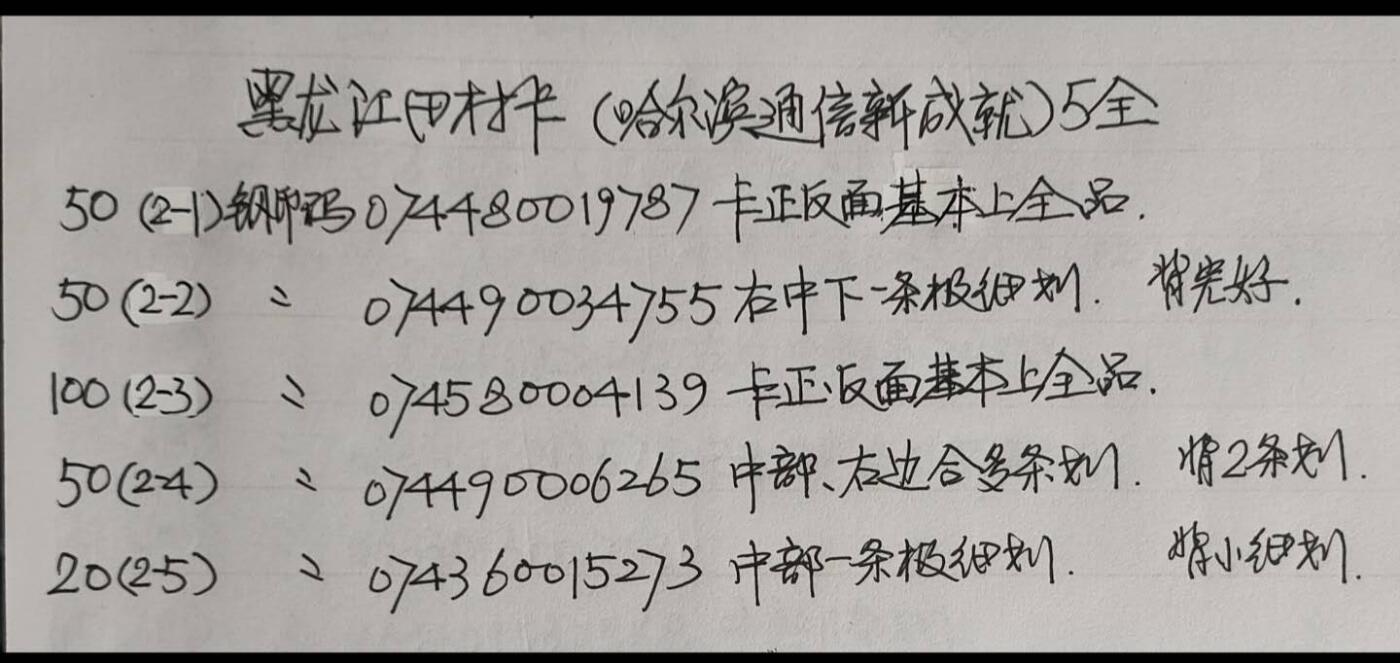 黑龙江田村卡(哈尔滨通信新成就)5全
50(2-1)钢印码074480019787卡正反面基本上全品.
50(2-2) 〃 074490034755右中下一条极细划. 背完好.
100(2-3) 〃 074580004139卡正反面基本上全品.
50(2-4) 〃 074490006265中部、右边合多条划. 背2条划.
20(2-5) 〃 074360015273中部一条极细划. 背小细划.